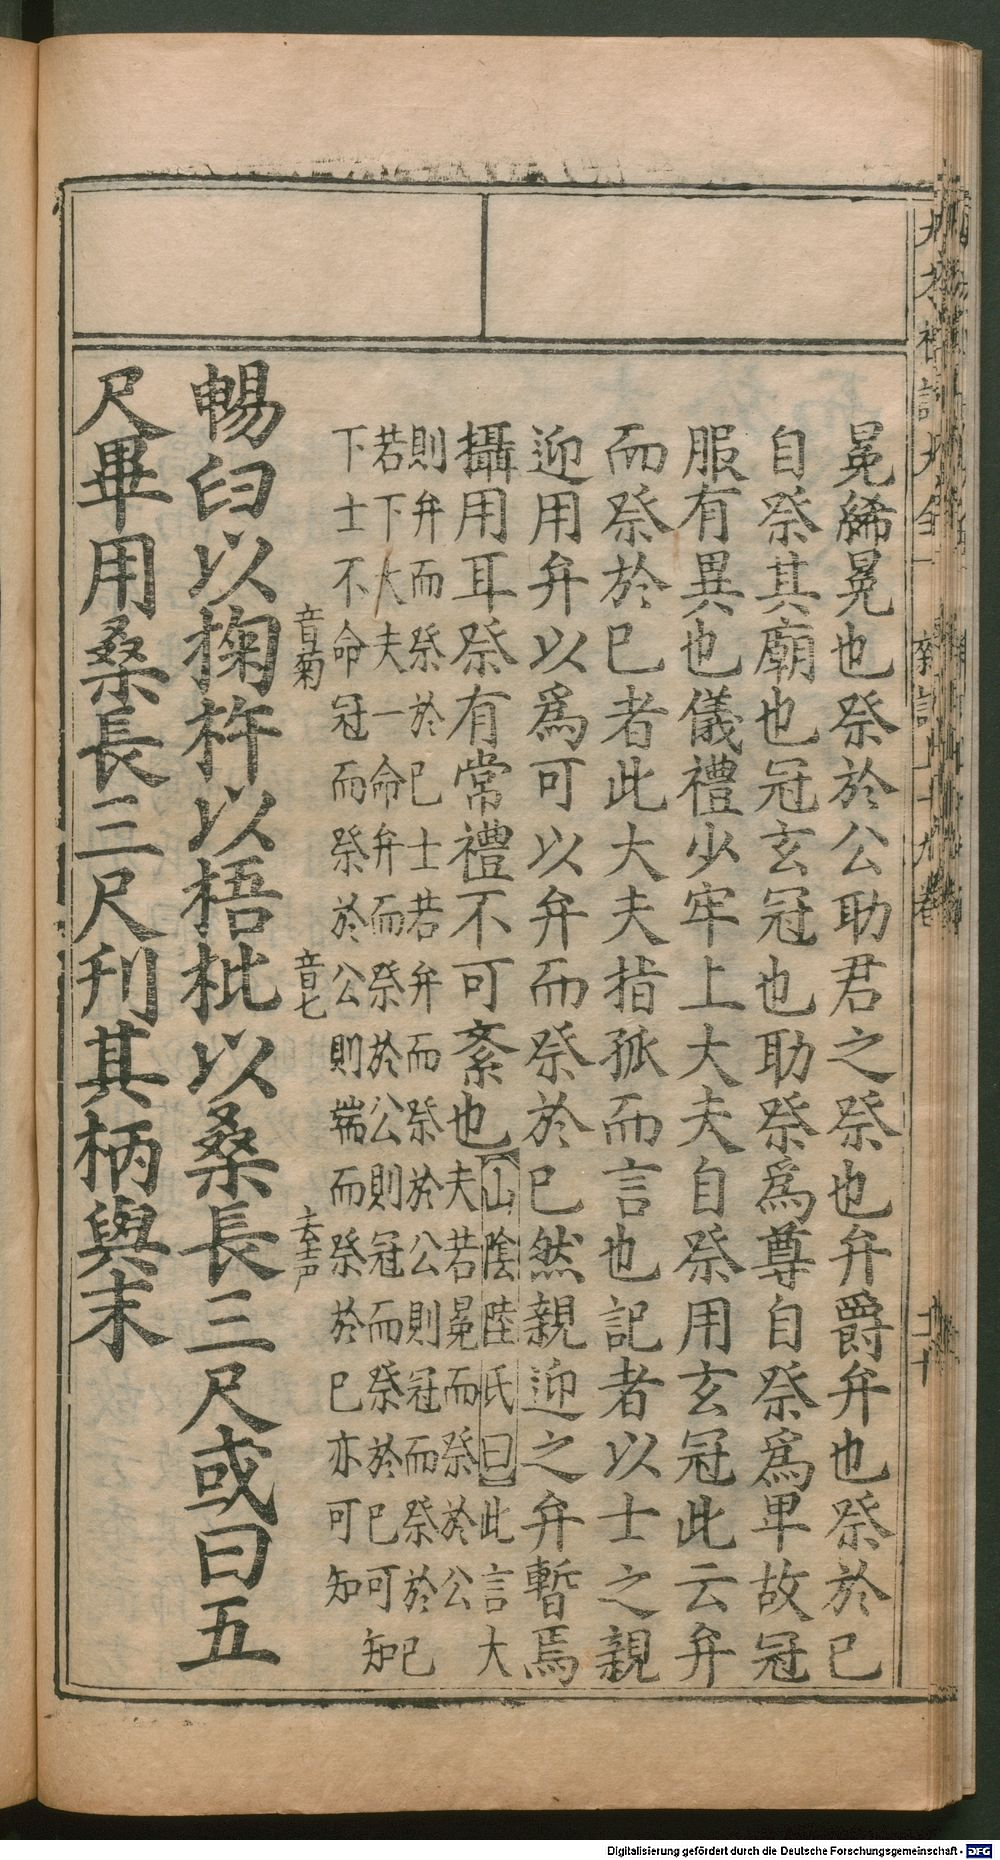 冕絺冕也祭於公助君之祭也弁爵弁也祭於已
自祭其廟也冠玄冠也助祭為尊自祭為卑故冠
服有異也儀禮少牢上大夫自祭用玄冠此云弁
而祭於已者此大夫指孤而言也記者以士之親
迎用弁以為可以弁而祭於已然親迎之弁暫焉
攝用耳祭有常禮不可紊也
山陰陸氏曰此言大
夫若冕而祭於公
則弁而祭於已士若弁而祭於公則冠而祭於已
若下大夫一命弁而祭於公則冠而祭於已可知
下士不命冠而祭於公則端而祭於已亦可知
暢臼以掬杵以梧枇以桑長三尺或曰五
音菊
音七
去声
尺畢用桑長三尺刋其柄與末
Digitalisierung gefördert durch die Deutsche Forschungsgemeinschaft - DFG